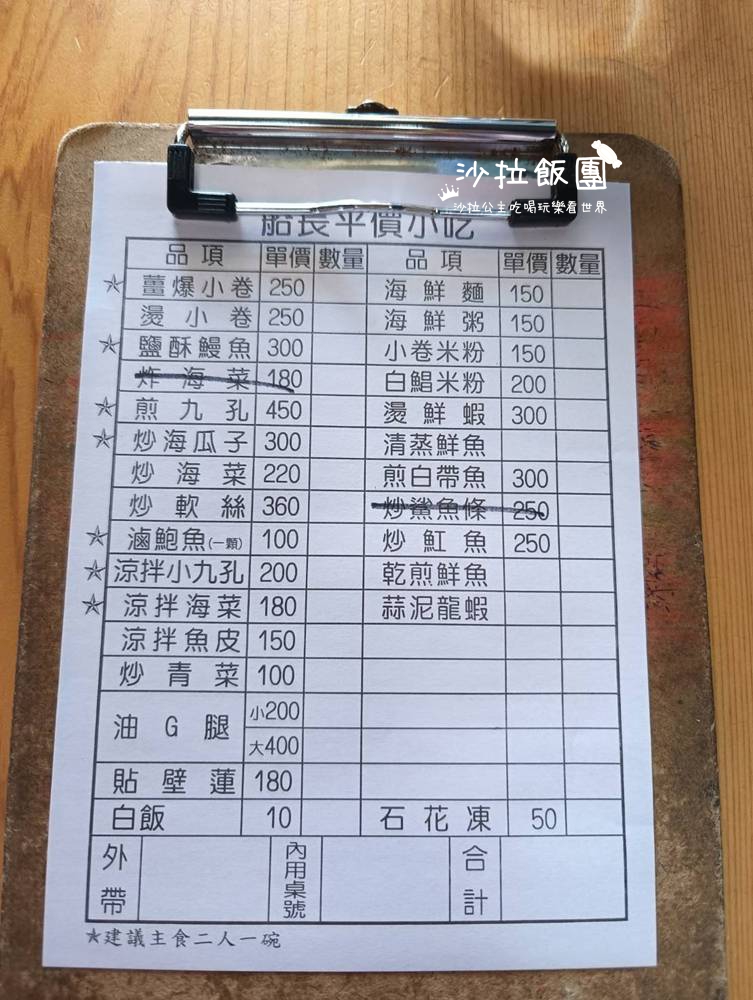 沙拉飯團
沙拉公主吃喝玩樂看世界
船長平價小吃
品項 單價 數量 品項 單價 數量
★ 薑爆小卷 250 海鮮麵 150
燙小卷 250 海鮮粥 150
★ 鹽酥鰻魚 300 小卷米粉 150
炸海菜 180 白鯧米粉 200
★ 煎九孔 450 燙鮮蝦 300
★ 炒海瓜子 300 清蒸鮮魚
炒海菜 220 煎白帶魚 300
炒軟絲 360 炒鯊魚條 250
★ 滷鮑魚(一顆) 100 炒魟魚 250
★ 涼拌小九孔 200 乾煎鮮魚
★ 涼拌海菜 180 蒜泥龍蝦
涼拌魚皮 150
炒青菜 100
油G腿 小200
大400
貼壁蓮 180
白飯 10 石花凍 50
外帶 內用桌號 合計
★建議主食二人一碗